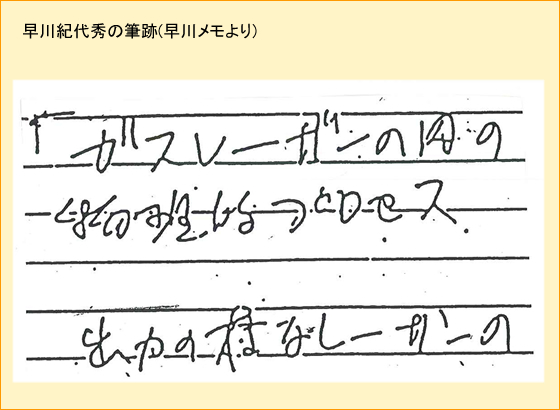 早川紀代秀の筆跡(早川メモより)
「ガスレーザーの内の
物理的プロセス
出力の様なレーザーの